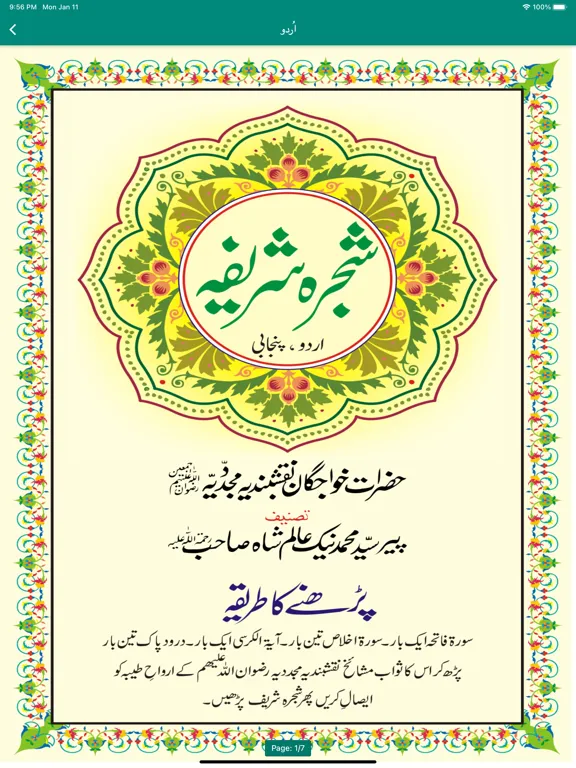 9:56 PM Mon Jan 11 100%
اُردو
شجرہ شریفہ
اردو ، پنجابی
حضرات خواجگان نقشبندیہ مجددیّہ رضوان اللہ علیہم اجمعین
تصنیف
پیر سیّد محمد نیک عالم شاہ صاحب رحمۃ اللہ علیہ
پڑھنے کا طریقہ
سورۃ فاتحہ ایک بار۔ سورۃ اخلاص تین بار۔ آیۃ الکرسی ایک بار۔ درود پاک تین بار
پڑھ کر اس کا ثواب مشائخ نقشبندیہ مجددیہ رضوان اللہ علیھم کے ارواحِ طیبہ کو
ایصال کریں پھر شجرہ شریف پڑھیں۔
Page: 1/7